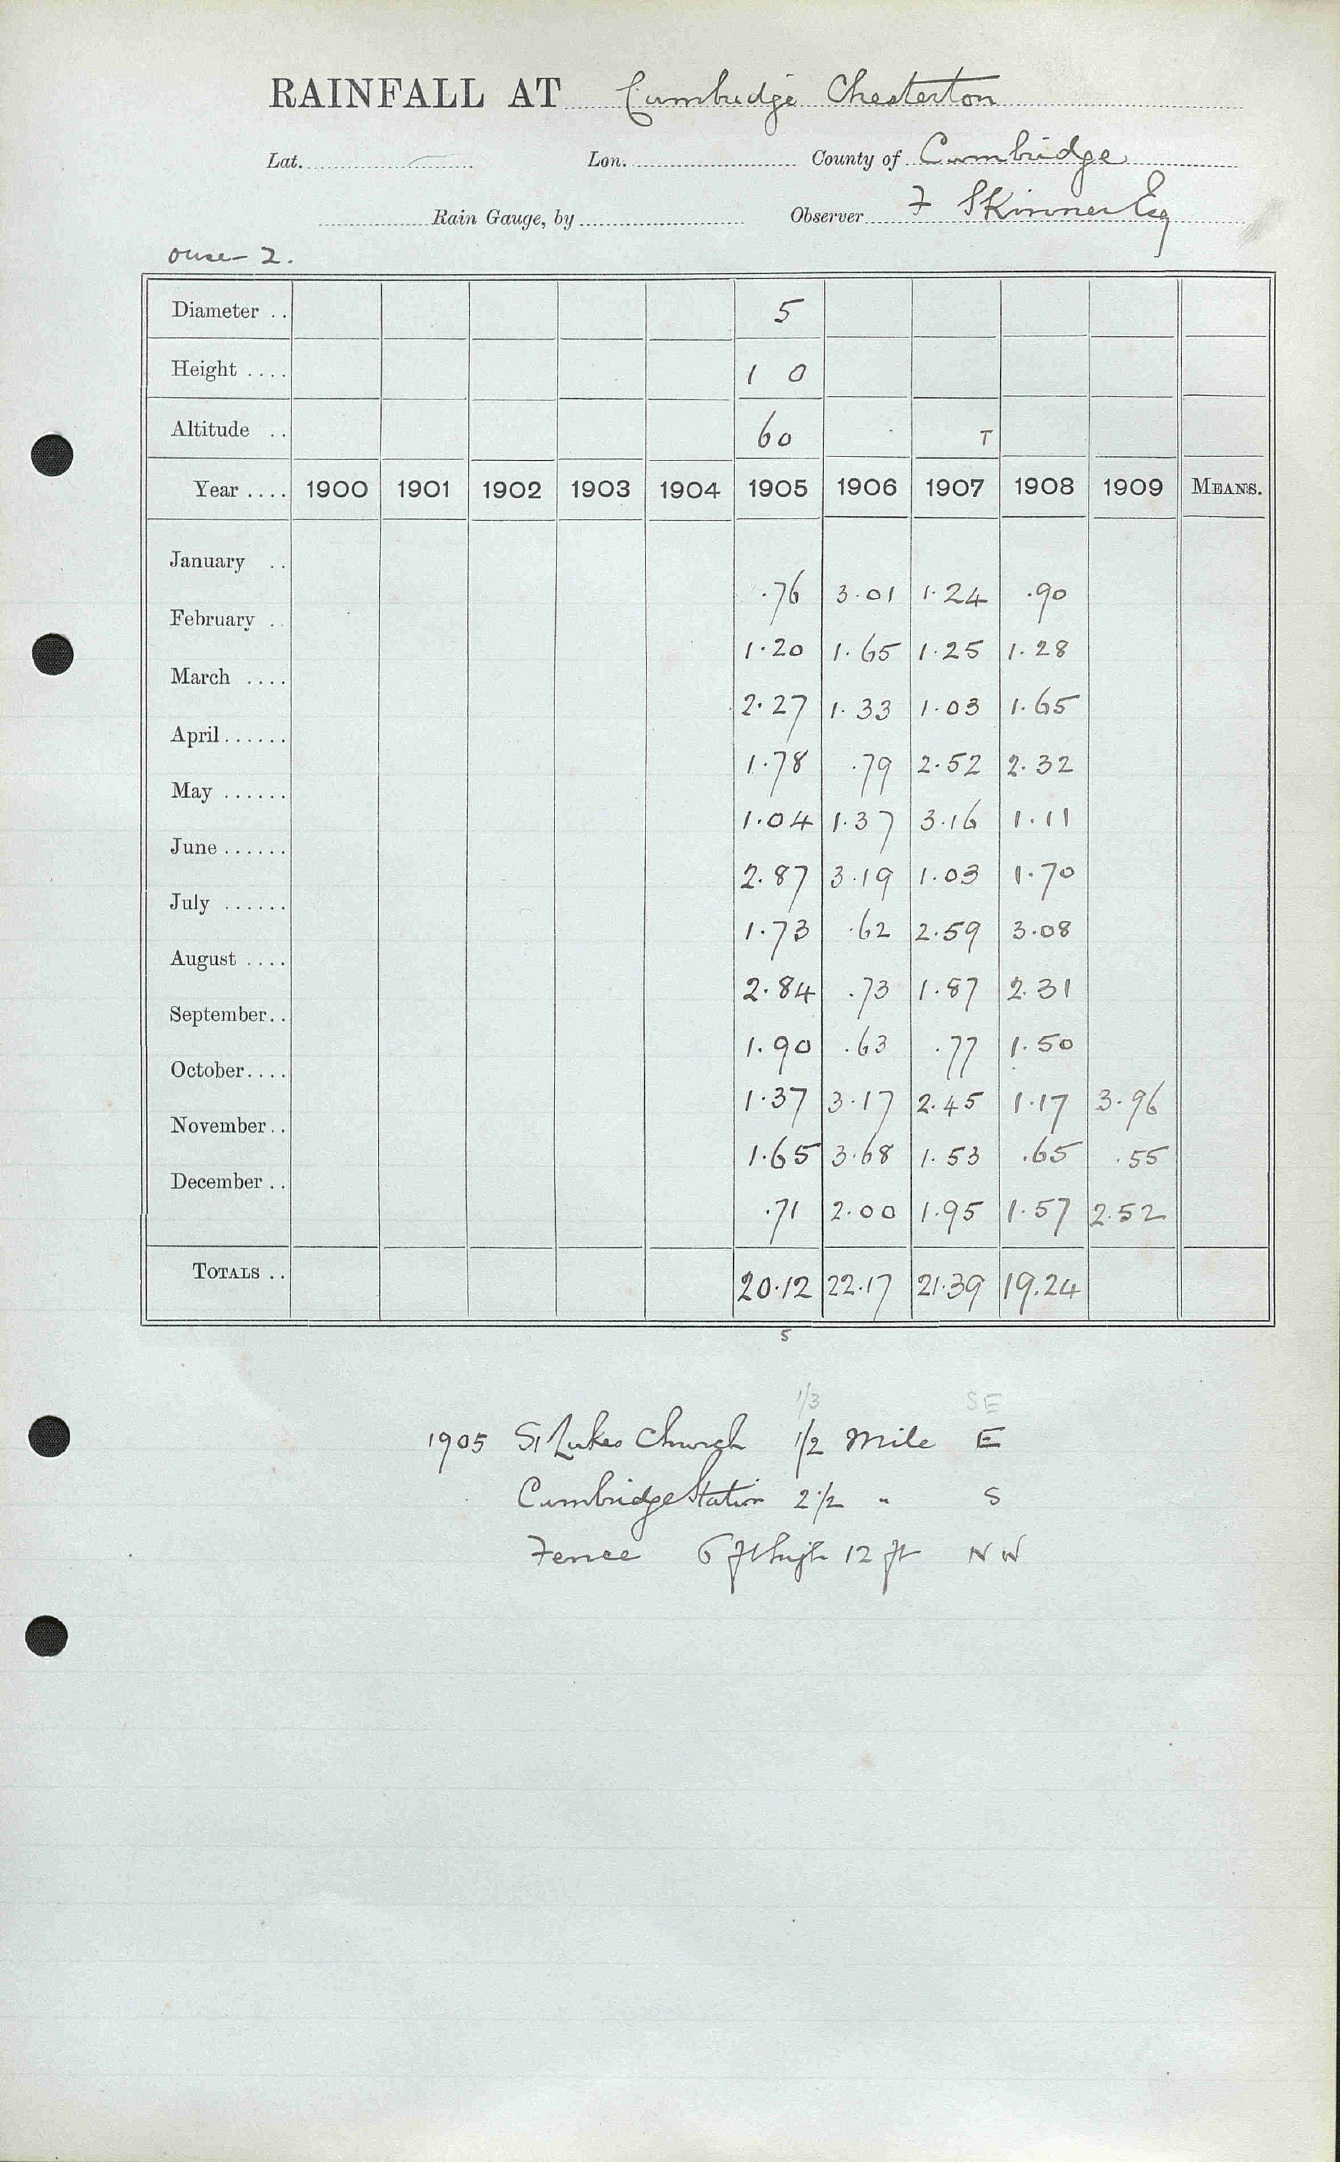 RAINFALL AT Cambridge Chesterton
Lat. Lon. County of Cambridge
Rain Gauge, by Observer F Skinner Esq
Ouse - 2.
Diameter .. 5
Height .... 1 0
Altitude .. 60 T
Year .... 1900 1901 1902 1903 1904 1905 1906 1907 1908 1909 MEANS.
January .. .76 3.01 1.24 .90
February .. 1.20 1.65 1.25 1.28
March .... 2.27 1.33 1.03 1.65
April...... 1.78 .79 2.52 2.32
May ...... 1.04 1.37 3.16 1.11
June ...... 2.87 3.19 1.03 1.70
July ...... 1.73 .62 2.59 3.08
August .... 2.84 .73 1.87 2.31
September.. 1.90 .63 .77 1.50
October.... 1.37 3.17 2.45 1.17 3.96
November.. 1.65 3.68 1.53 .65 .55
December .. .71 2.00 1.95 1.57 2.52
TOTALS .. 20.12 22.17 21.39 19.24
5
1/3 SE
1905 St Lukes Church 1/2 Mile E
Cambridge Station 2 1/2 " S
Fence 6 ft high 12 ft NW